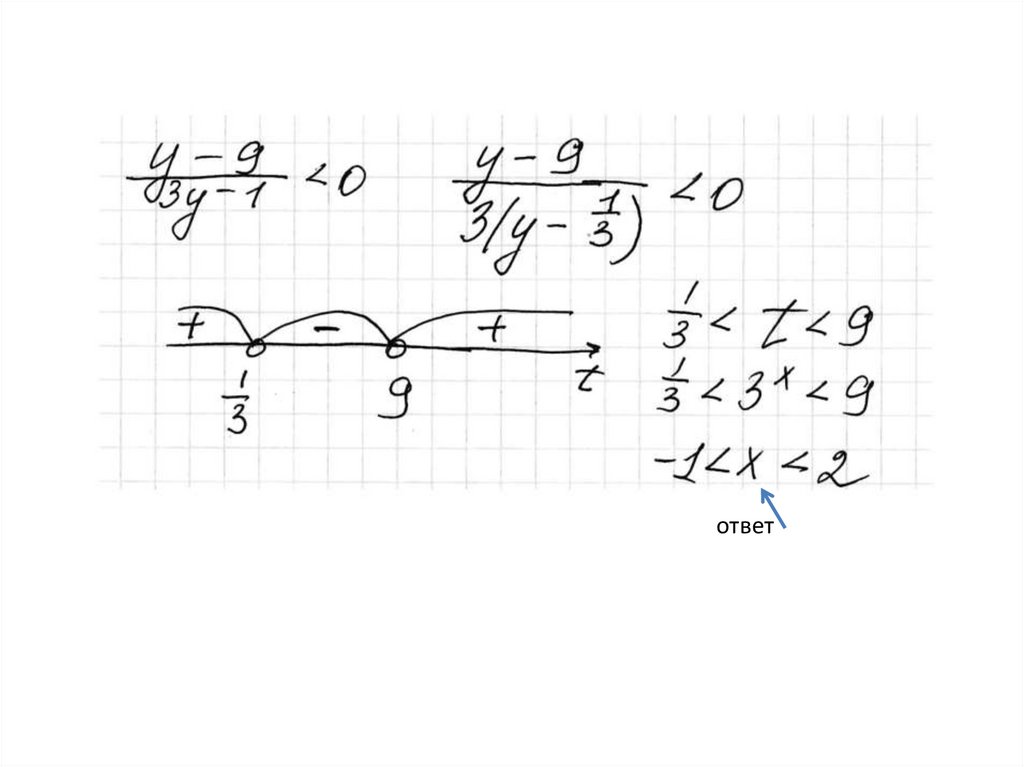 y - 9 / 3y - 1 < 0    y - 9 / 3(y - 1/3) < 0
+ - + t
1/3 9
1/3 < t < 9
1/3 < 3^x < 9
-1 < x < 2
ответ